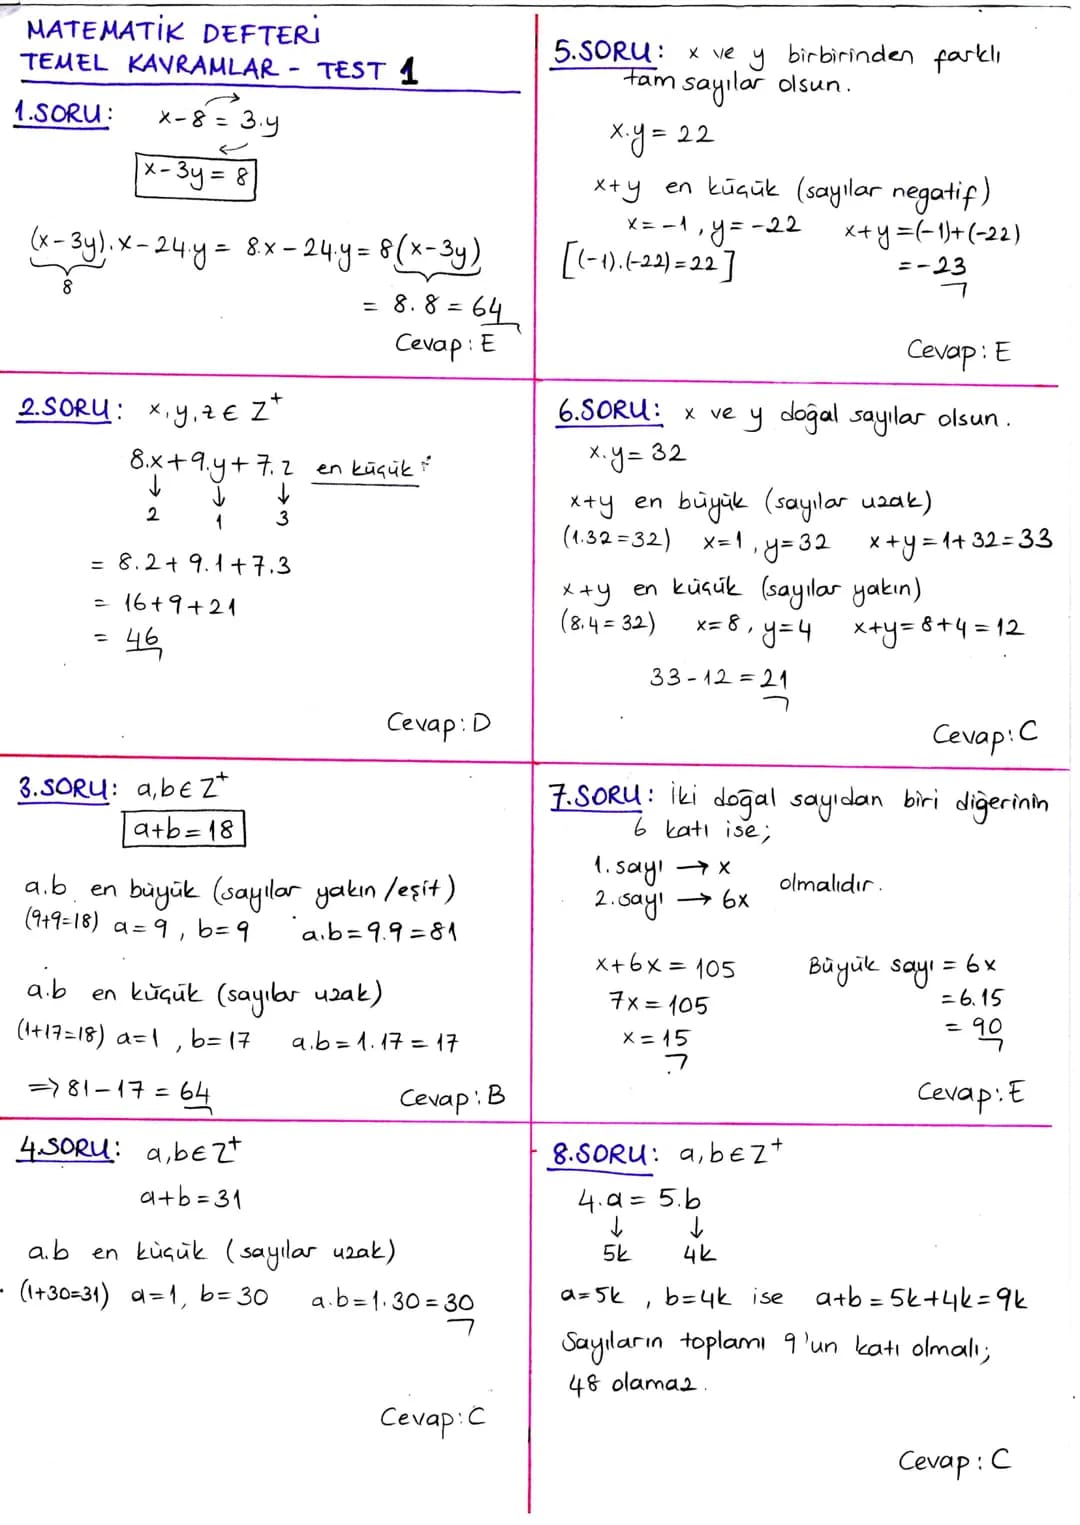 MATEMATİK DEFTERİ
TEMEL KAVRAMLAR - TEST 1
1.SORU: x-8 = 3.y
x-3y = 8
(x-3y).x-24.y = 8.x-24.y = 8(x-3y)
8
= 8.8 = 64
Cevap: E
2.SORU: x,y,z ∈ Z⁺
8.x+9.y+7.z en küçük:
↓ ↓ ↓
2 1 3
= 8.2+9.1+7.3
= 16+9+21
= 46
Cevap: D
3.SORU: a,b ∈ Z⁺
a+b=18
a.b en büyük (sayılar yakın/eşit)
(9+9=18) a=9, b=9 a.b=9.9=81
a.b en küçük (sayılar uzak)
(1+17=18) a=1, b=17 a.b=1.17=17
⇒ 81-17 = 64
Cevap: B
4.SORU: a,b ∈ Z⁺
a+b=31
a.b en küçük (sayılar uzak)
(1+30=31) a=1, b=30 a.b=1.30=30
Cevap: C
5.SORU: x ve y birbirinden farklı
tam sayılar olsun.
x.y = 22
x+y en küçük (sayılar negatif)
x=-1, y=-22 x+y=(-1)+(-22)
[(-1).(-22)=22] =-23
Cevap: E
6.SORU: x ve y doğal sayılar olsun.
x.y = 32
x+y en büyük (sayılar uzak)
(1.32=32) x=1, y=32 x+y=1+32=33
x+y en küçük (sayılar yakın)
(8.4=32) x=8, y=4 x+y=8+4=12
33-12=21
Cevap: C
7.SORU: İki doğal sayıdan biri diğerinin
6 katı ise;
1.sayı → x
2.sayı → 6x olmalıdır.
x+6x = 105 Büyük sayı = 6x
7x = 105 =6.15
x = 15 = 90
Cevap: E
8.SORU: a,b ∈ Z⁺
4.a = 5.b
↓ ↓
5k 4k
a=5k, b=4k ise a+b=5k+4k=9k
Sayıların toplamı 9'un katı olmalı;
48 olamaz.
Cevap: C